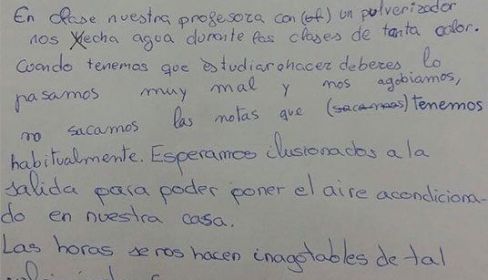 En clase nuestra profesora con (el) un pulverizador
nos echa agua durante las clases de tanta calor.
Cuando tenemos que estudiar o hacer deberes lo
pasamos muy mal y nos agobiamos,
no sacamos las notas que (sacamos) tenemos
habitualmente. Esperamos ilusionados a la
salida para poder poner el aire acondiciona-
do en nuestra casa.
Las horas se nos hacen inagotables de tal